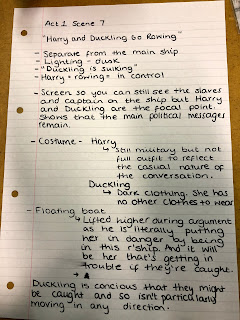 Act 1 Scene 7
"Harry and Duckling Go Rowing"
- Separate from the main ship
- Lighting - dusk
- "Duckling is sulking"
- Harry = rowing = in control
- Screen so you can still see the slaves
and captain on the ship but Harry
and Duckling are the focal point.
Shows that the main political messages
remain.
- Costume - Harry
↳ Still military but not
full outfit to reflect
the casual nature of
the conversation.
Duckling
↳ Dark clothing. She has
no other clothes to wear
- Floating boat
↳ Lifted higher during argument
as he is literally putting
her in danger by being
in this r'ship. And it will
be her that's getting in
trouble if they're caught.
Duckling is concious that they might
be caught and so isn't particularly
moving in any direction.